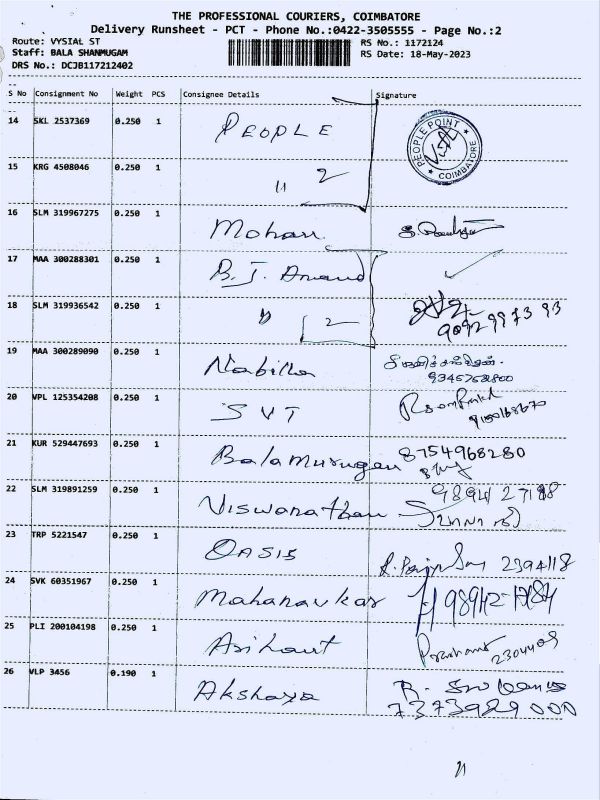 THE PROFESSIONAL COURIERS, COIMBATORE
Delivery Runsheet - PCT - Phone No.:0422-3505555 - Page No.:2
Route: VYSIAL ST
RS No.: 1172124
Staff: BALA SHANMUGAM
RS Date: 18-May-2023
DRS No.: DCJB117212402
S No Consignment No Weight PCS Consignee Details Signature
14 SKL 2537369 0.250 1 PEOPLE
PEOPLE POINT
COIMBATORE
15 KRG 4508046 0.250 1 " 2
16 SLM 319967275 0.250 1 Mohan
17 MAA 300288301 0.250 1 B.J. Anand
18 SLM 319936542 0.250 1 " 2
9092997393
19 MAA 300289090 0.250 1 Nabilla
20 VPL 125354208 0.250 1 SVT
21 KUR 529447693 0.250 1 Balamurugan 8754968280
22 SLM 319891259 0.250 1 Viswanathan
23 TRP 5221547 0.250 1 OASIS 2394118
24 SVK 60351967 0.250 1
25 PLI 200104198 0.250 1 Arihant 2304409
26 VLP 3456 0.190 1 Akshaya
7373929000